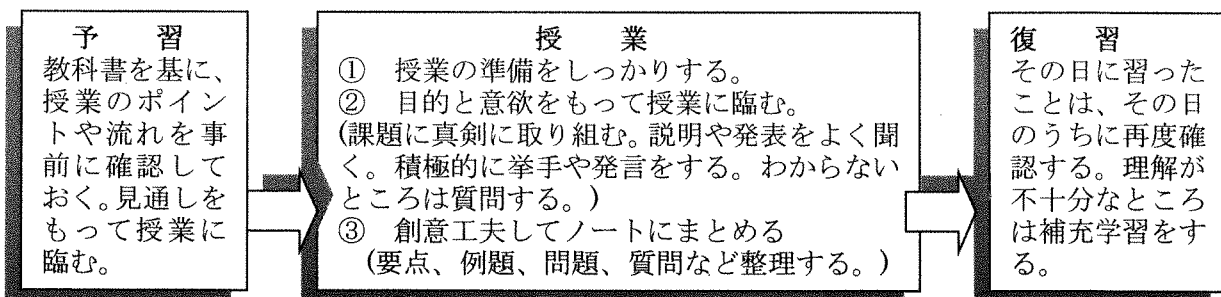 予　習
教科書を基に、
授業のポイン
トや流れを事
前に確認して
おく。見通しを
もって授業に
臨む。
授　業
①　授業の準備をしっかりする。
②　目的と意欲をもって授業に臨む。
(課題に真剣に取り組む。説明や発表をよく聞
く。積極的に挙手や発言をする。わからない
ところは質問する。)
③　創意工夫してノートにまとめる
(要点、例題、問題、質問など整理する。)
復　習
その日に習った
ことは、その日
のうちに再度確
認する。理解が
不十分なところ
は補充学習をす
る。